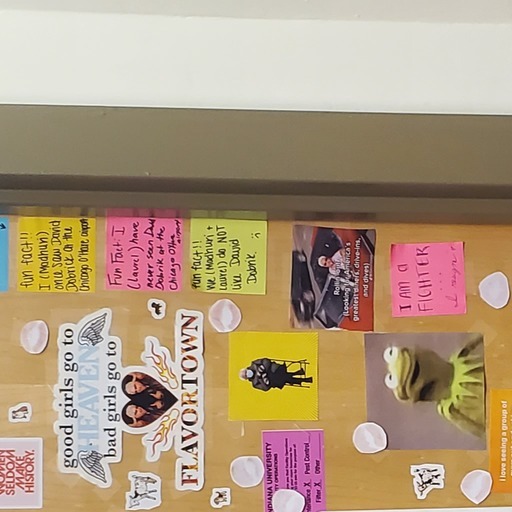 WOMEN
SELDOM
MAKE
HISTORY.
good girls go to
HEAVEN
bad girls go to
FLAVORTOWN
fun fact!!
I (Madhuri)
once saw David
Dobrik at the
Chicago O'Hare airport
Fun Fact: I
(Laurel) have
never seen David
Dobrik at the
Chicago O'Hare
airport
fun fact!!
We (Madhuri +
Laurel) do NOT
like David
Dobrik.
INDIANA UNIVERSITY
Y OPERATIONS
ntenance X Pest Control
Filter X Other
Rollin' out
(Looking for America's
greatest diners, drive-ins,
and dives)
I AM A
FIGHTER
...
I resign
i love seeing a group of